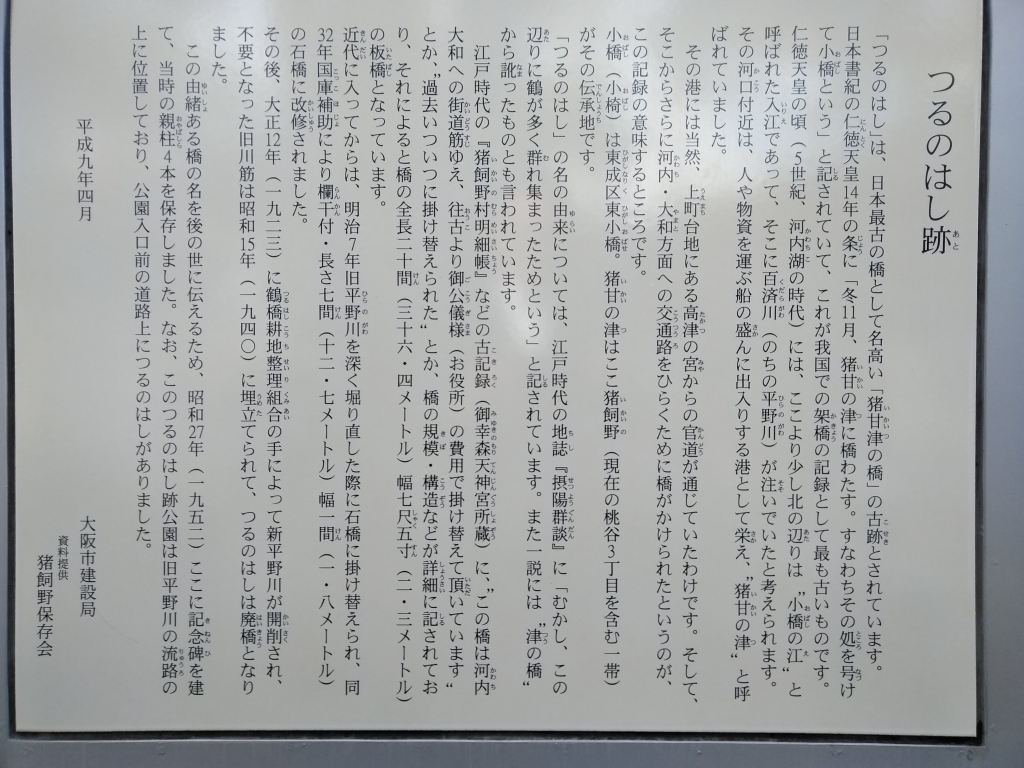 つるのはし跡
「つるのはし」は、日本最古の橋として名高い「猪甘津の橋」の古跡とされています。
日本書紀の仁徳天皇14年の条に「冬11月、猪甘の津に橋わたす。すなわちその処を号け
て小橋という」と記されていて、これが我国での架橋の記録として最も古いものです。
仁徳天皇の頃（5世紀、河内湖の時代）には、ここより少し北の辺りは〝小橋の江〟と
呼ばれた入江であって、そこに百済川（のちの平野川）が注いでいたと考えられます。
その河口付近は、人や物資を運ぶ船の盛んに出入りする港として栄え、〝猪甘の津〟と呼
ばれていました。
その港には当然、上町台地にある高津の宮からの官道が通じていたわけです。そして、
そこからさらに河内・大和方面への交通路をひらくために橋がかけられたというのが、
この記録の意味するところです。
小橋（小椅）は東成区東小橋。猪甘の津はここ猪飼野（現在の桃谷3丁目を含む一帯）
がその伝承地です。
「つるのはし」の名の由来については、江戸時代の地誌『摂陽群談』に「むかし、この
辺りに鶴が多く群れ集まったためという」と記されています。また一説には〝津の橋〟
から訛ったものとも言われています。
江戸時代の『猪飼野村明細帳』などの古記録（御幸森天神宮所蔵）に、〝この橋は河内
大和への街道筋ゆえ、往古より御公儀様（お役所）の費用で掛け替えて頂いています〟
とか、〝過去いついつに掛け替えられた〟とか、橋の規模・構造などが詳細に記されてお
り、それによると橋の全長二十間（三十六・四メートル）幅七尺五寸（二・三メートル）
の板橋となっています。
近代に入ってからは、明治7年旧平野川を深く堀り直した際に石橋に掛け替えられ、同
32年国庫補助により欄干付・長さ七間（十二・七メートル）幅一間（一・八メートル）
の石橋に改修されました。
その後、大正12年（一九二三）に鶴橋耕地整理組合の手によって新平野川が開削され、
不要となった旧川筋は昭和15年（一九四〇）に埋立てられて、つるのはしは廃橋となり
ました。
この由緒ある橋の名を後の世に伝えるため、昭和27年（一九五二）ここに記念碑を建
て、当時の親柱4本を保存しました。なお、このつるのはし跡公園は旧平野川の流路の
上に位置しており、公園入口前の道路上につるのはしがありました。
平成九年四月
大阪市建設局
資料提供
猪飼野保存会